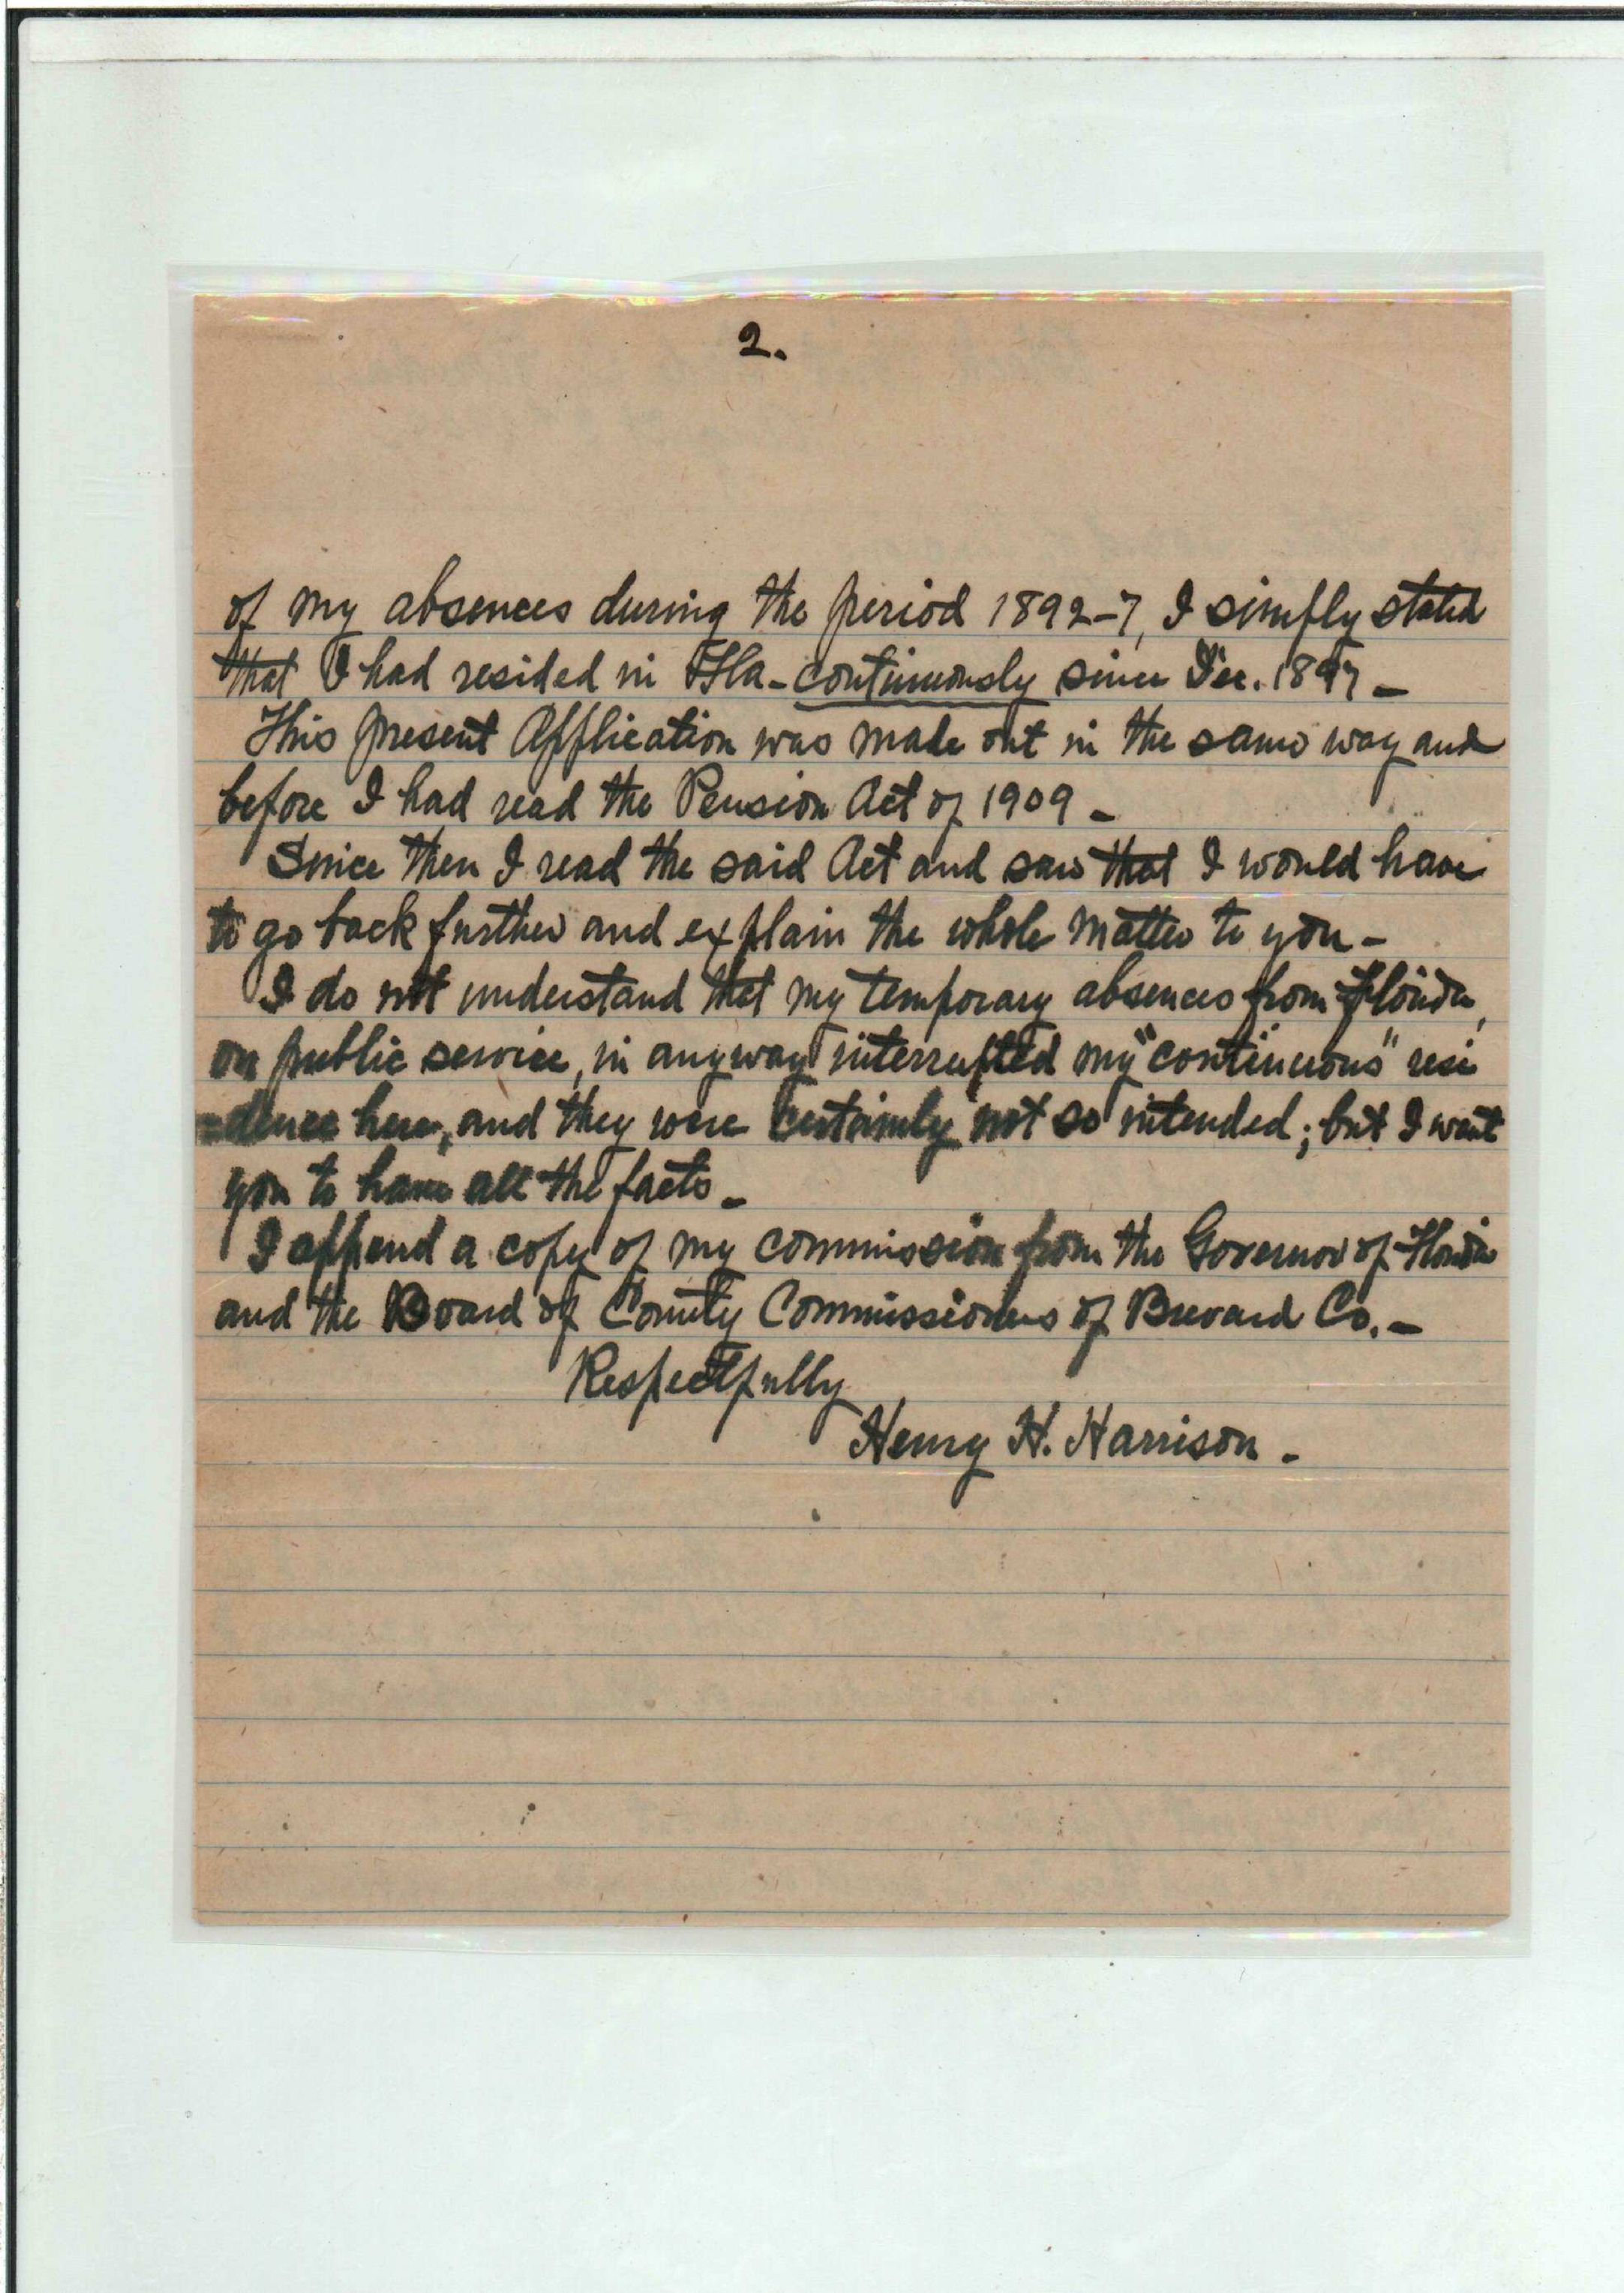 2.
of my absences during the period 1892-7, I simply stated
that I had resided in Fla - continuously since Dec. 1897 -
This present Application was made out in the same way and
before I had read the Pension Act of 1909 -
Since then I read the said Act and saw that I would have
to go back further and explain the whole matter to you -
I do not understand that my temporary absences from Florida,
on public service, in anyway interrupted my "continuous" resi
=dence here, and they were certainly not so intended; but I want
you to have all the facts -
I append a copy of my commission from the Governor of Florida
and the Board of County Commissioners of Brevard Co. -
Respectfully
Henry H. Harrison -